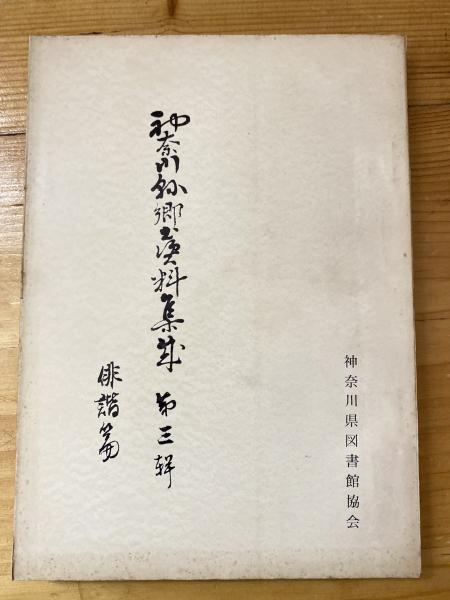 神奈川県図書館協会
神奈川縣郷土資料集成 第三輯
俳諧篇